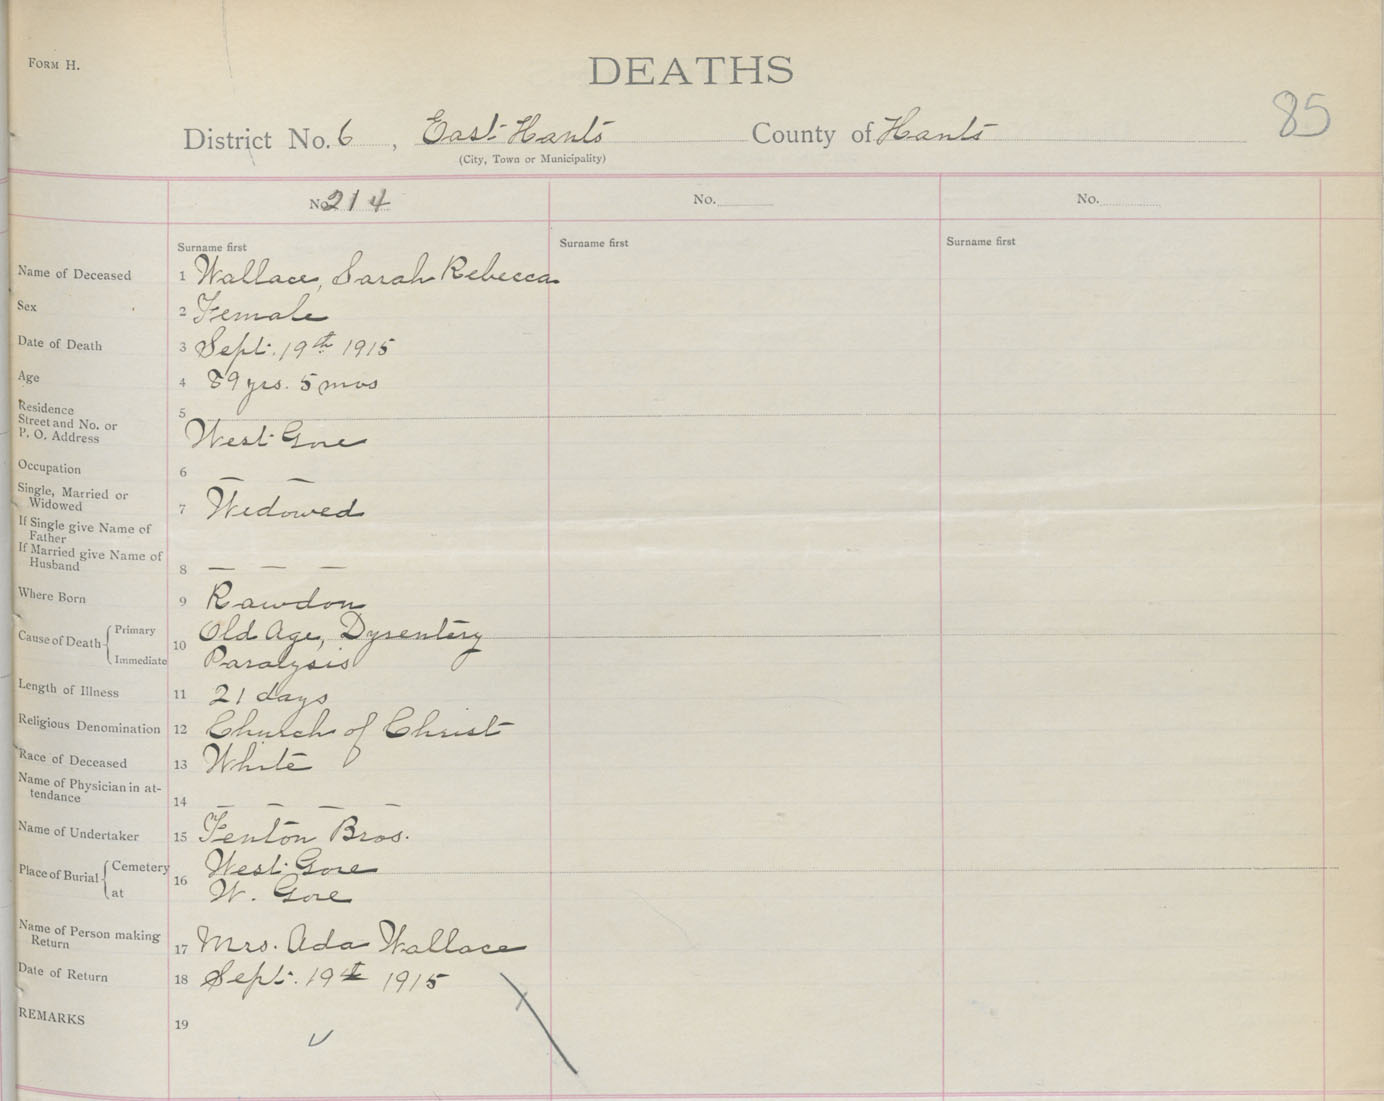 FORM H.
DEATHS
85
District No. 6, East Hants County of Hants
(City, Town or Municipality)
No. 214 No. No.
Surname first Surname first Surname first
Name of Deceased 1 Wallace, Sarah Rebecca
Sex 2 Female
Date of Death 3 Sept. 19th 1915
Age 4 89 yrs. 5 mos
Residence 5
Street and No. or
P. O. Address West Gore
Occupation 6 — —
Single, Married or
Widowed 7 Widowed
If Single give Name of
Father
If Married give Name of
Husband 8 — — —
Where Born 9 Rawdon
Cause of Death { Primary 10 Old Age, Dysentery
Immediate Paralysis
Length of Illness 11 21 days
Religious Denomination 12 Church of Christ
Race of Deceased 13 White
Name of Physician in at-
tendance 14 — — — —
Name of Undertaker 15 Fenton Bros.
Place of Burial { Cemetery 16 West Gore
at W. Gore
Name of Person making
Return 17 Mrs. Ada Wallace
Date of Return 18 Sept. 19th 1915
REMARKS 19